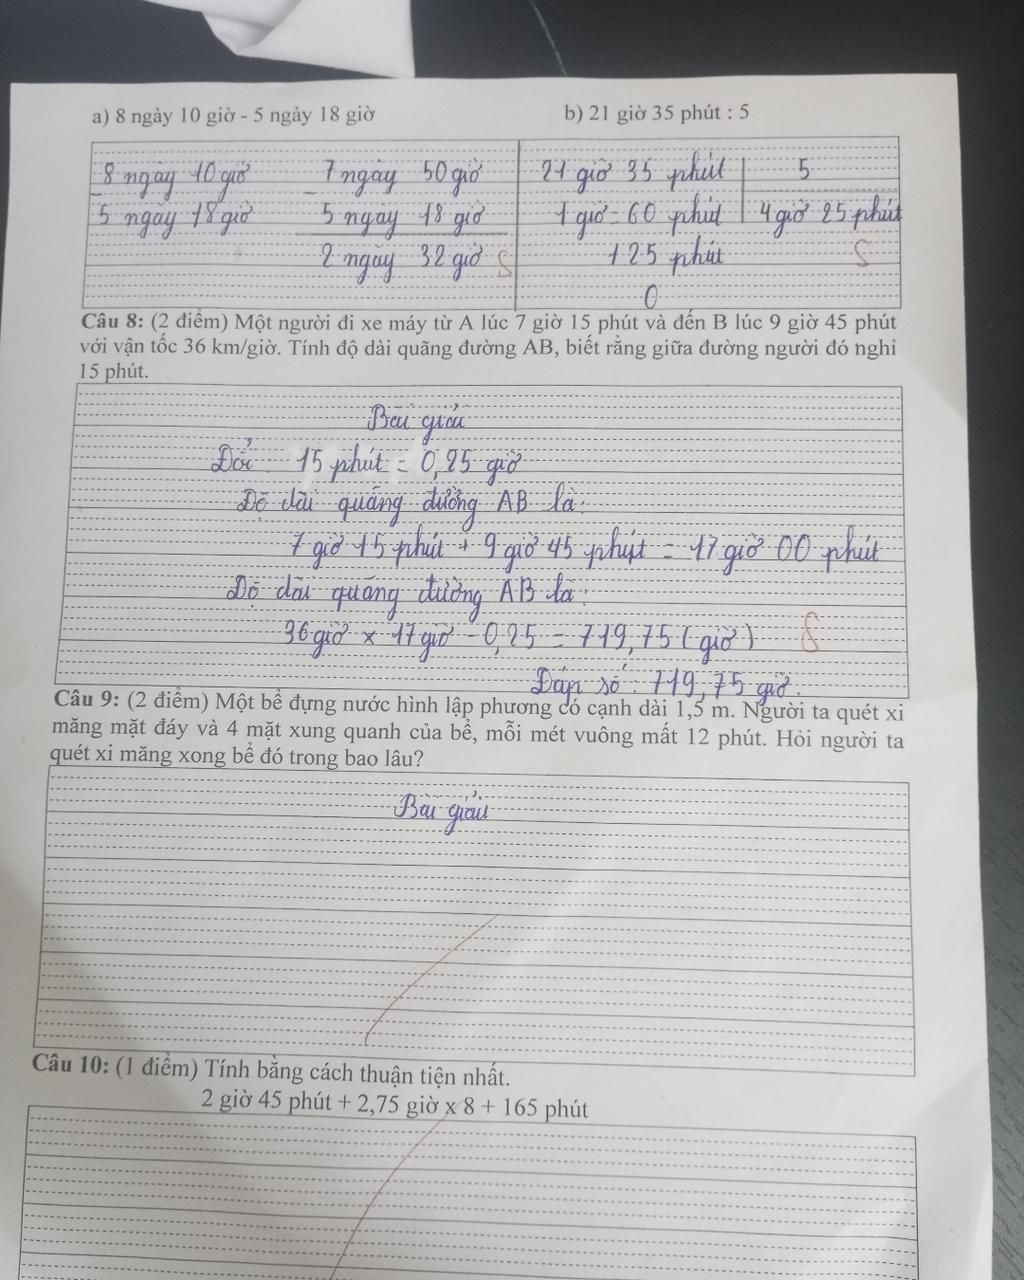 a) 8 ngày 10 giờ - 5 ngày 18 giờ
b) 21 giờ 35 phút : 5
8 ngày 10 giờ
- 5 ngày 18 giờ
7 ngày 50 giờ
- 5 ngày 18 giờ
2 ngày 32 giờ S
21 giờ 35 phút 5
1 giờ = 60 phút 4 giờ 25 phút
125 phút S
0
Câu 8: (2 điểm) Một người đi xe máy từ A lúc 7 giờ 15 phút và đến B lúc 9 giờ 45 phút
với vận tốc 36 km/giờ. Tính độ dài quãng đường AB, biết rằng giữa đường người đó nghỉ
15 phút.
Bài giải
Đổi 15 phút = 0,25 giờ
Độ dài quãng đường AB là:
7 giờ 15 phút + 9 giờ 45 phút = 17 giờ 00 phút
Độ dài quãng đường AB là:
36 giờ x 17 giờ - 0,25 = 719,75 (giờ) S
Đáp số: 719,75 giờ.
Câu 9: (2 điểm) Một bể đựng nước hình lập phương có cạnh dài 1,5 m. Người ta quét xi
măng mặt đáy và 4 mặt xung quanh của bể, mỗi mét vuông mất 12 phút. Hỏi người ta
quét xi măng xong bể đó trong bao lâu?
Bài giải
Câu 10: (1 điểm) Tính bằng cách thuận tiện nhất.
2 giờ 45 phút + 2,75 giờ x 8 + 165 phút